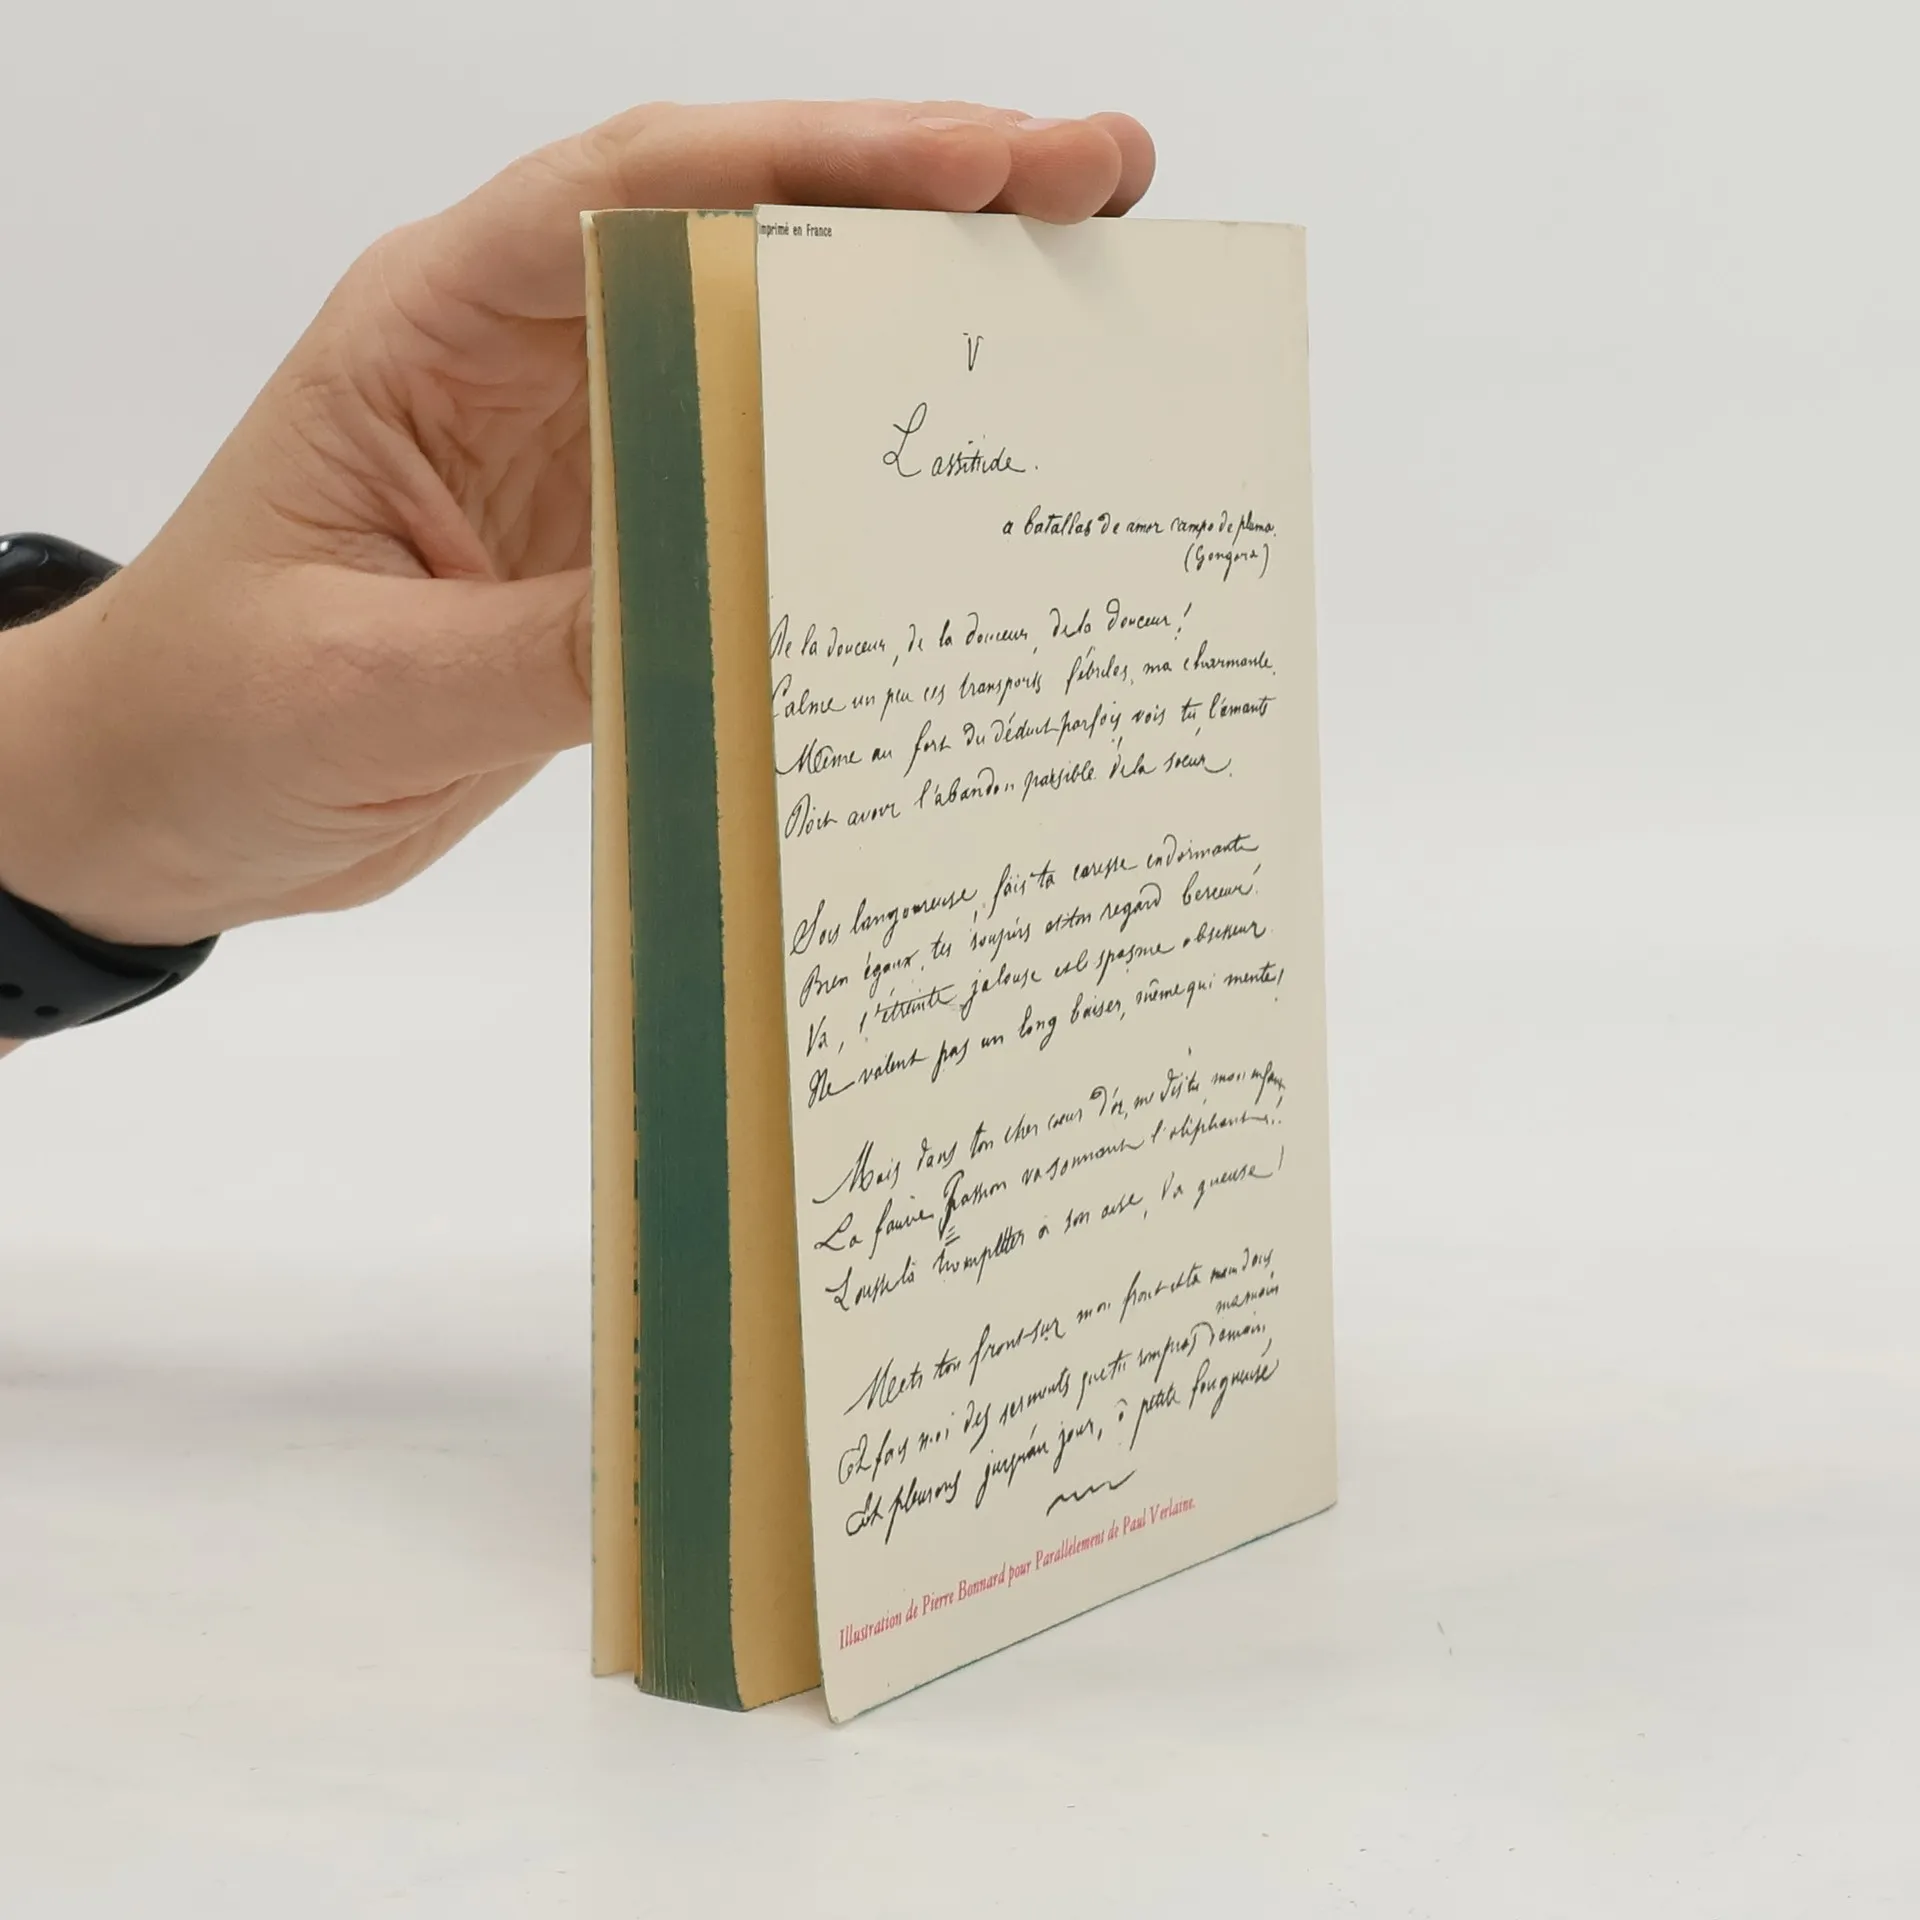 Imprimé en France
V
Lassitude.
a batallas de amor campo de pluma.
(Gongora)
De la douceur, de la douceur, de la douceur!
Calme un peu ces transports fébriles, ma charmante.
Même au fort du déduit parfois, vois tu, l'amante
Doit avoir l'abandon paisible de la soeur.
Sois langoureuse, fais ta caresse endormante
Bien égaux, tes soupirs et ton regard berceur.
Va, l'étreinte jalouse et le spasme obsesseur
Ne valent pas un long baiser, même qui mente!
Mais dans ton cher coeur d'or, me dis tu, mon enfant,
La fauve Passion va sonnant l'oliphant..!
Laisse la trompetter à son aise, la gueuse!
Mets ton front sur mon front et ta main dans
ma main
Et fais moi des serments que tu rompras demain,
Et pleurons jusqu'au jour, ô petite fougueuse
Illustration de Pierre Bonnard pour Parallèlement de Paul Verlaine.